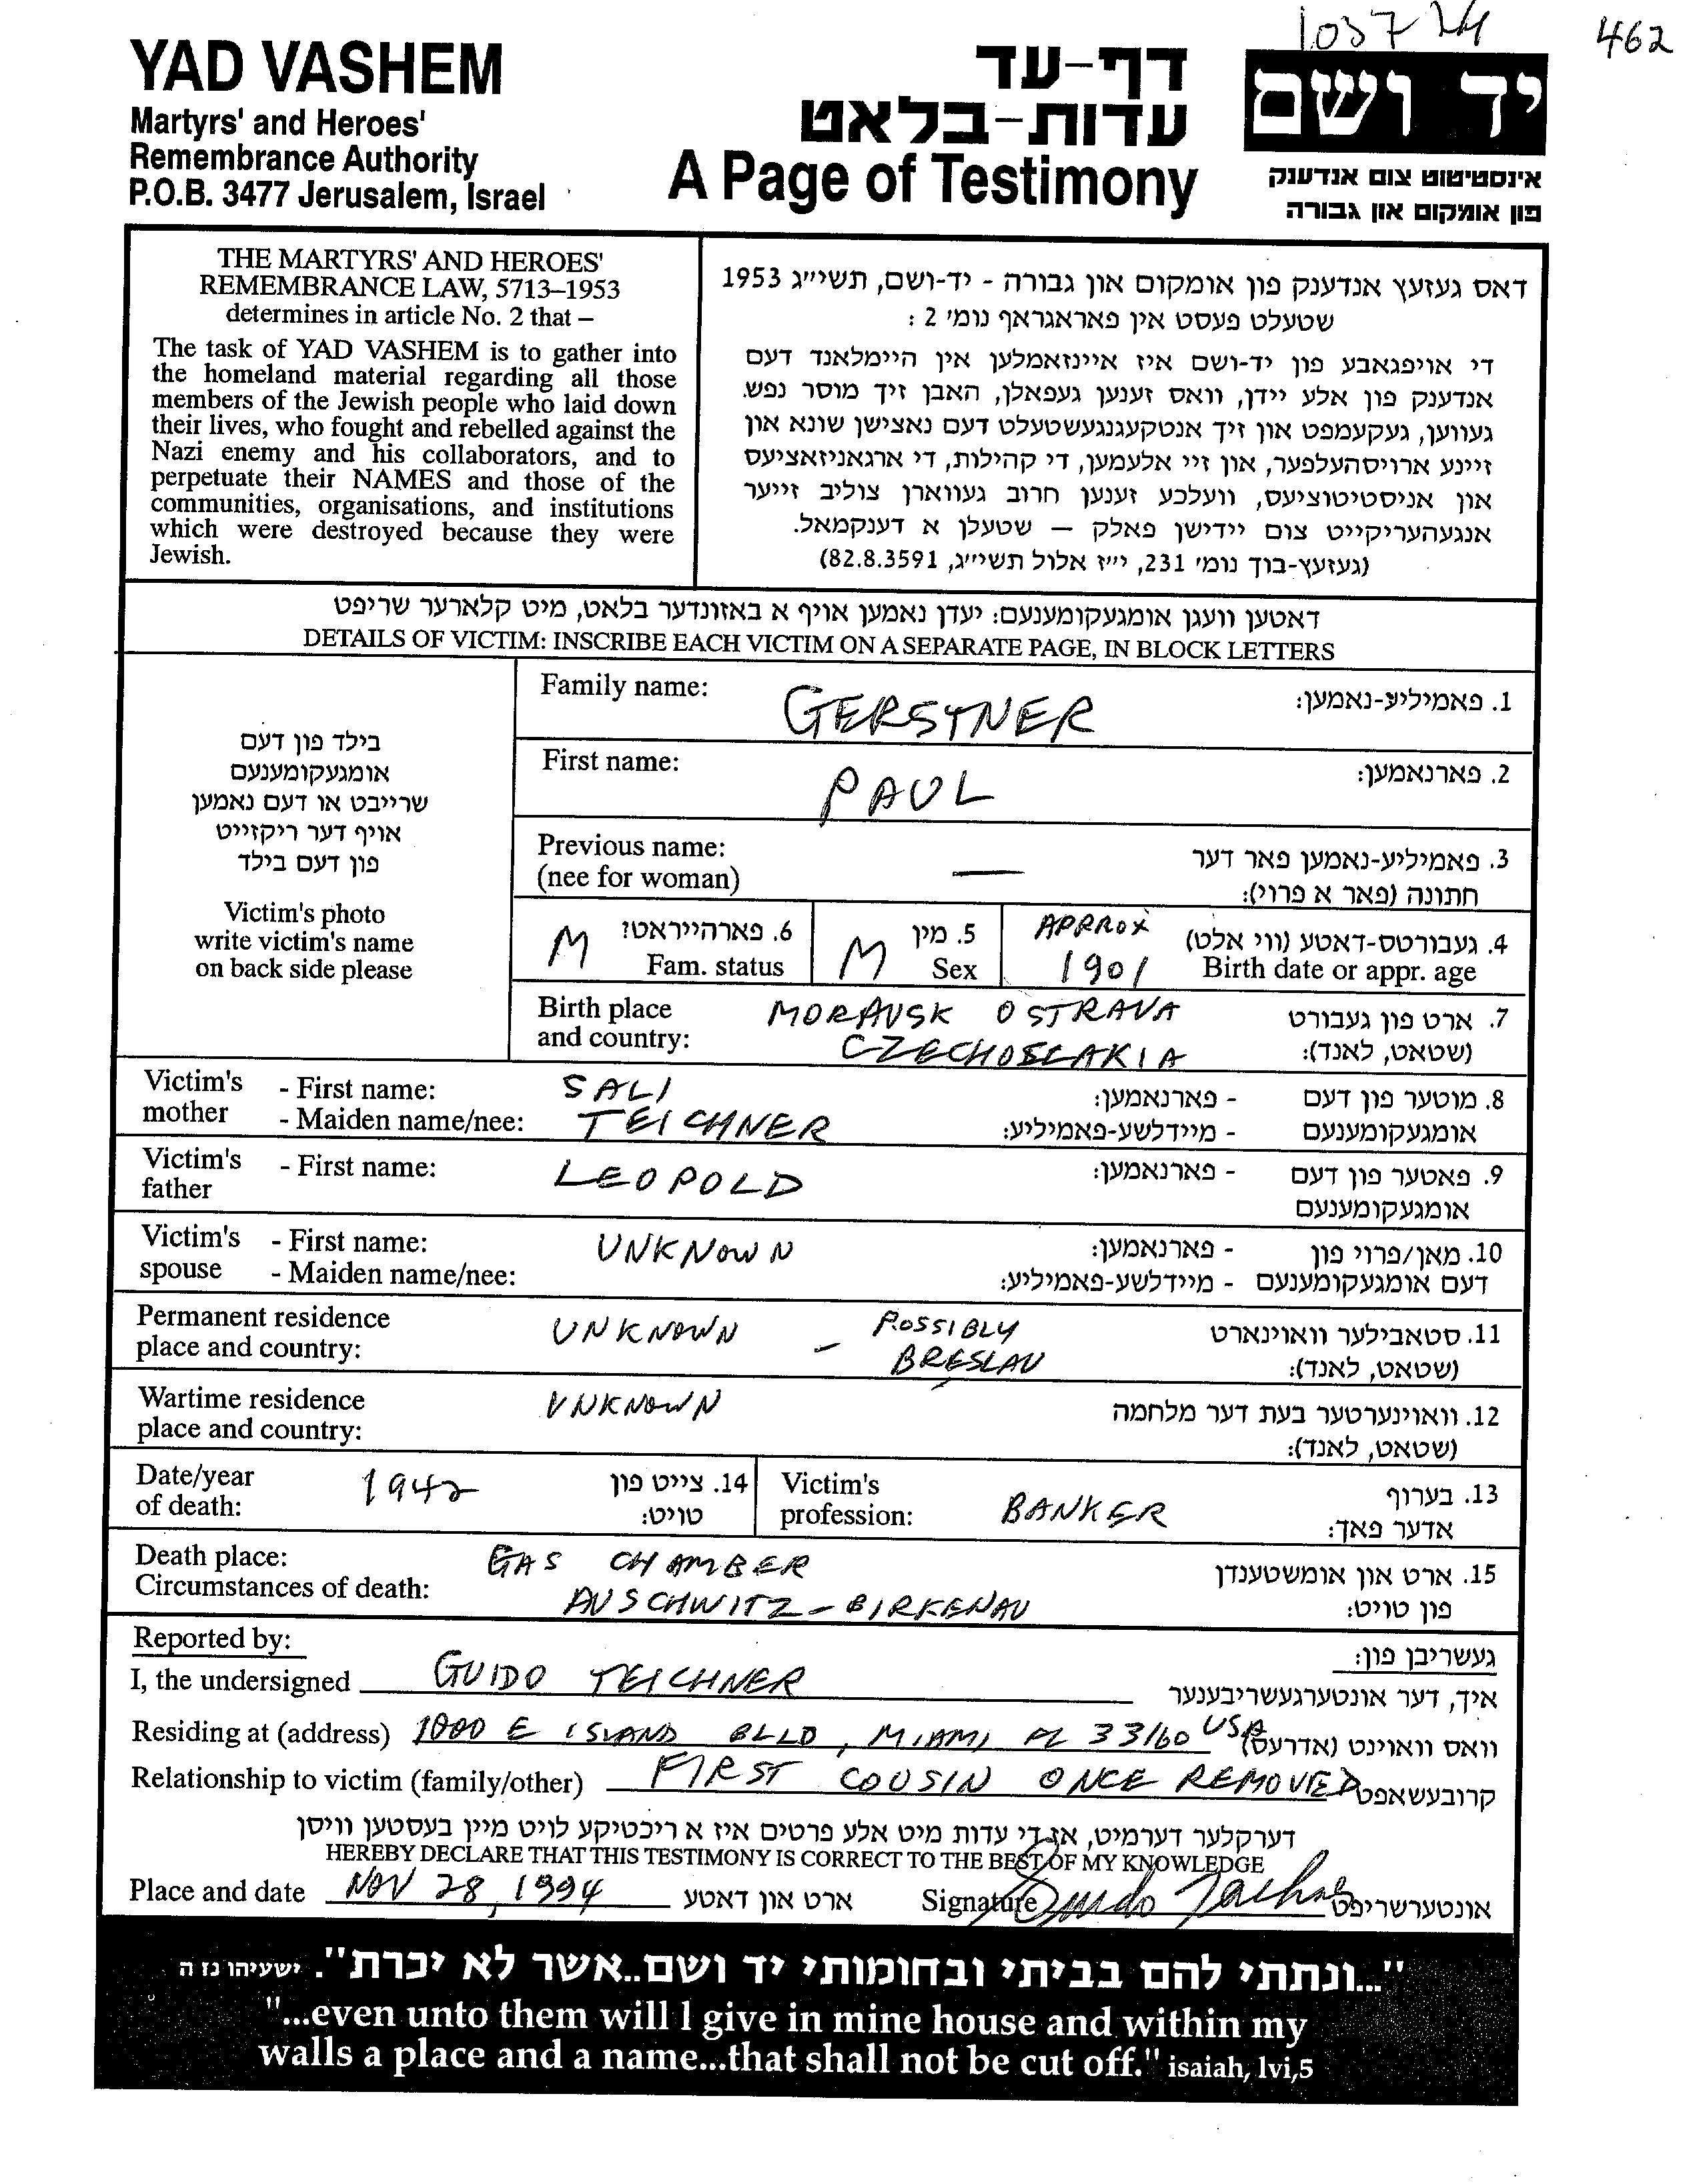 103724
462
YAD VASHEM
Martyrs' and Heroes'
Remembrance Authority
P.O.B. 3477 Jerusalem, Israel
דף-עד
עדות-בלאט
A Page of Testimony
יד ושם
אינסטיטוט צום אנדענק
פון אומקום און גבורה
THE MARTYRS' AND HEROES'
REMEMBRANCE LAW, 5713–1953
determines in article No. 2 that –
The task of YAD VASHEM is to gather into
the homeland material regarding all those
members of the Jewish people who laid down
their lives, who fought and rebelled against the
Nazi enemy and his collaborators, and to
perpetuate their NAMES and those of the
communities, organisations, and institutions
which were destroyed because they were
Jewish.
דאס געזעץ אנדענק פון אומקום און גבורה - יד-ושם, תשי״ג 1953
שטעלט פעסט אין פאראגראף נומ׳ 2 :
די אויפגאבע פון יד-ושם איז איינזאמלען אין היימלאנד דעם
אנדענק פון אלע יידן, וואס זענען געפאלן, האבן זיך מוסר נפש.
געווען, געקעמפט און זיך אנטקעגנגעשטעלט דעם נאצישן שונא און
זיינע ארויסהעלפער, און זיי אלעמען, די קהילות, די ארגאניזאציעס
און אניסטיטוציעס, וועלכע זענען חרוב געווארן צוליב זייער
אנגעהעריקייט צום יידישן פאלק — שטעלן א דענקמאל.
(געזעץ-בוך נומ׳ 231, י״ז אלול תשי״ג, 82.8.3591)
דאטען וועגן אומגעקומענעם: יעדן נאמען אויף א באזונדער בלאט, מיט קלארער שריפט
DETAILS OF VICTIM: INSCRIBE EACH VICTIM ON A SEPARATE PAGE, IN BLOCK LETTERS
בילד פון דעם
אומגעקומענעם
שרייבט או דעם נאמען
אויף דער ריקזייט
פון דעם בילד
Victim's photo
write victim's name
on back side please
Family name: GERSTNER 1. פאמיליע-נאמען:
First name: PAUL 2. פארנאמען:
Previous name: — 3. פאמיליע-נאמען פאר דער
(nee for woman) חתונה (פאר א פרוי):
M 6. פארהייראט? M 5. מין APPROX 4. געבורטס-דאטע (ווי אלט)
Fam. status Sex 1901 Birth date or appr. age
Birth place MORAVSK OSTRAVA 7. ארט פון געבורט
and country: CZECHOSLAKIA (שטאט, לאנד):
Victim's - First name: SALI - פארנאמען: 8. מוטער פון דעם
mother - Maiden name/nee: TEICHNER - מיידלשע-פאמיליע: אומגעקומענעם
Victim's - First name: LEOPOLD - פארנאמען: 9. פאטער פון דעם
father אומגעקומענעם
Victim's - First name: UNKNOWN - פארנאמען: 10. מאן/פרוי פון
spouse - Maiden name/nee: - מיידלשע-פאמיליע: דעם אומגעקומענעם
Permanent residence UNKNOWN – POSSIBLY 11. סטאבילער וואוינארט
place and country: BRESLAU (שטאט, לאנד):
Wartime residence UNKNOWN 12. וואוינערטער בעת דער מלחמה
place and country: (שטאט, לאנד):
Date/year 1942 14. צייט פון Victim's BANKER 13. בערוף
of death: טויט: profession: אדער פאך:
Death place: GAS CHAMBER 15. ארט און אומשטענדן
Circumstances of death: AUSCHWITZ – BIRKENAU פון טויט:
Reported by: געשריבן פון:
I, the undersigned GUIDO TEICHNER איך, דער אונטערגעשריבענער
Residing at (address) 1000 E ISLAND BLLD, MIAMI FL 33160 USA וואס וואוינט (אדרעס)
Relationship to victim (family/other) FIRST COUSIN ONCE REMOVED קרובעשאפט
דערקלער דערמיט, אז די עדות מיט אלע פרטים איז א ריכטיקע לויט מיין בעסטען וויסן
HEREBY DECLARE THAT THIS TESTIMONY IS CORRECT TO THE BEST OF MY KNOWLEDGE
Place and date NOV 28, 1994 ארט און דאטע Signature Guido Teichner אונטערשריפט
"...ונתתי להם בביתי ובחומותי יד ושם..אשר לא יכרת". ישעיהו נז ה
"...even unto them will I give in mine house and within my
walls a place and a name...that shall not be cut off." isaiah, lvi,5